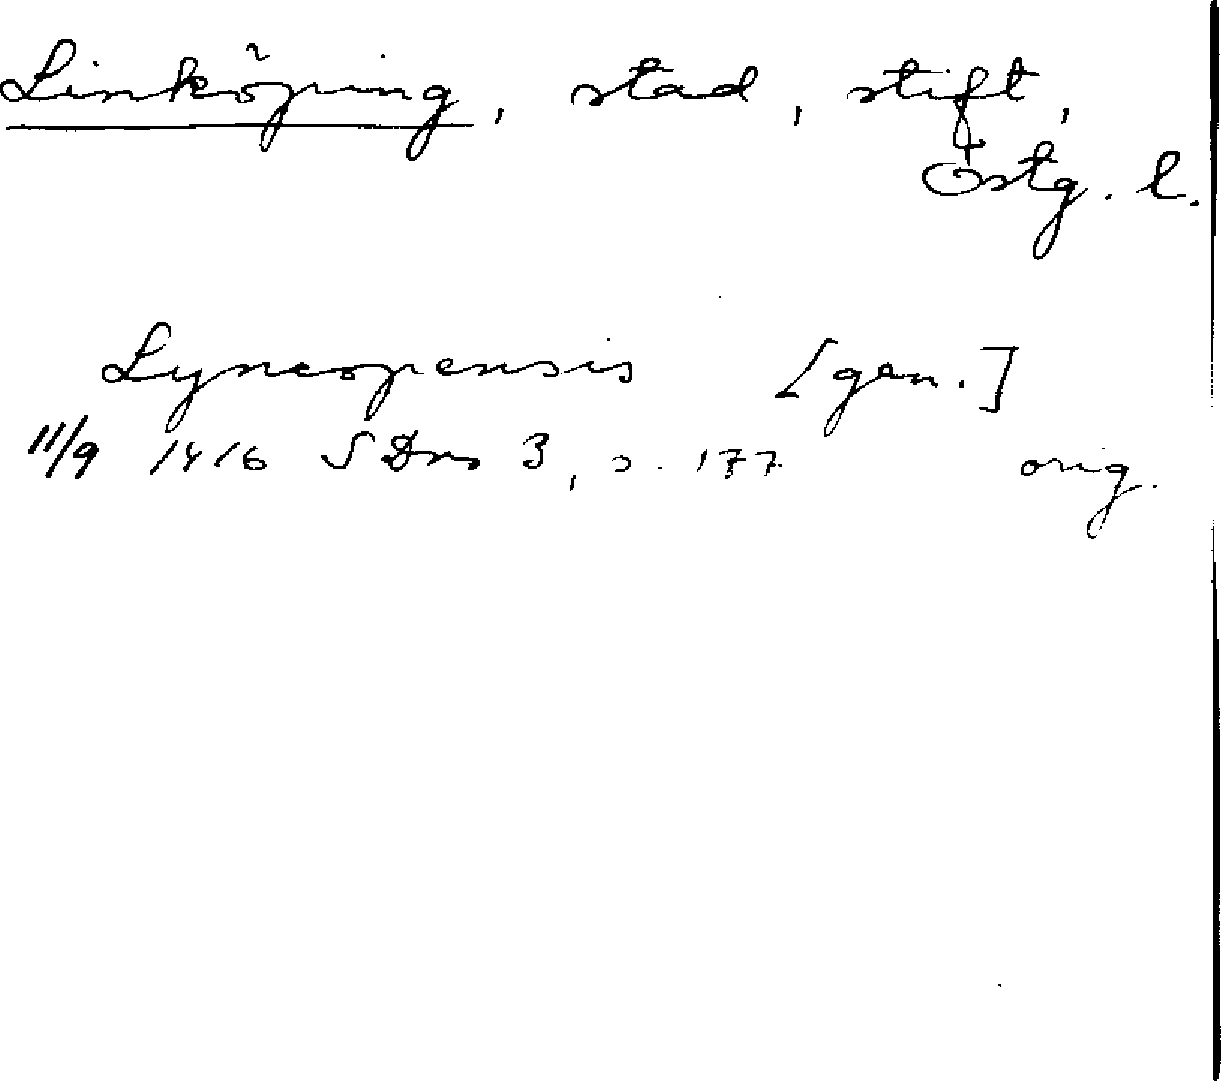 Linköping, stad, stift,
Östg. l.
Lyncopensis [gen.]
11/9 1416 SDns 3, s. 177 orig.